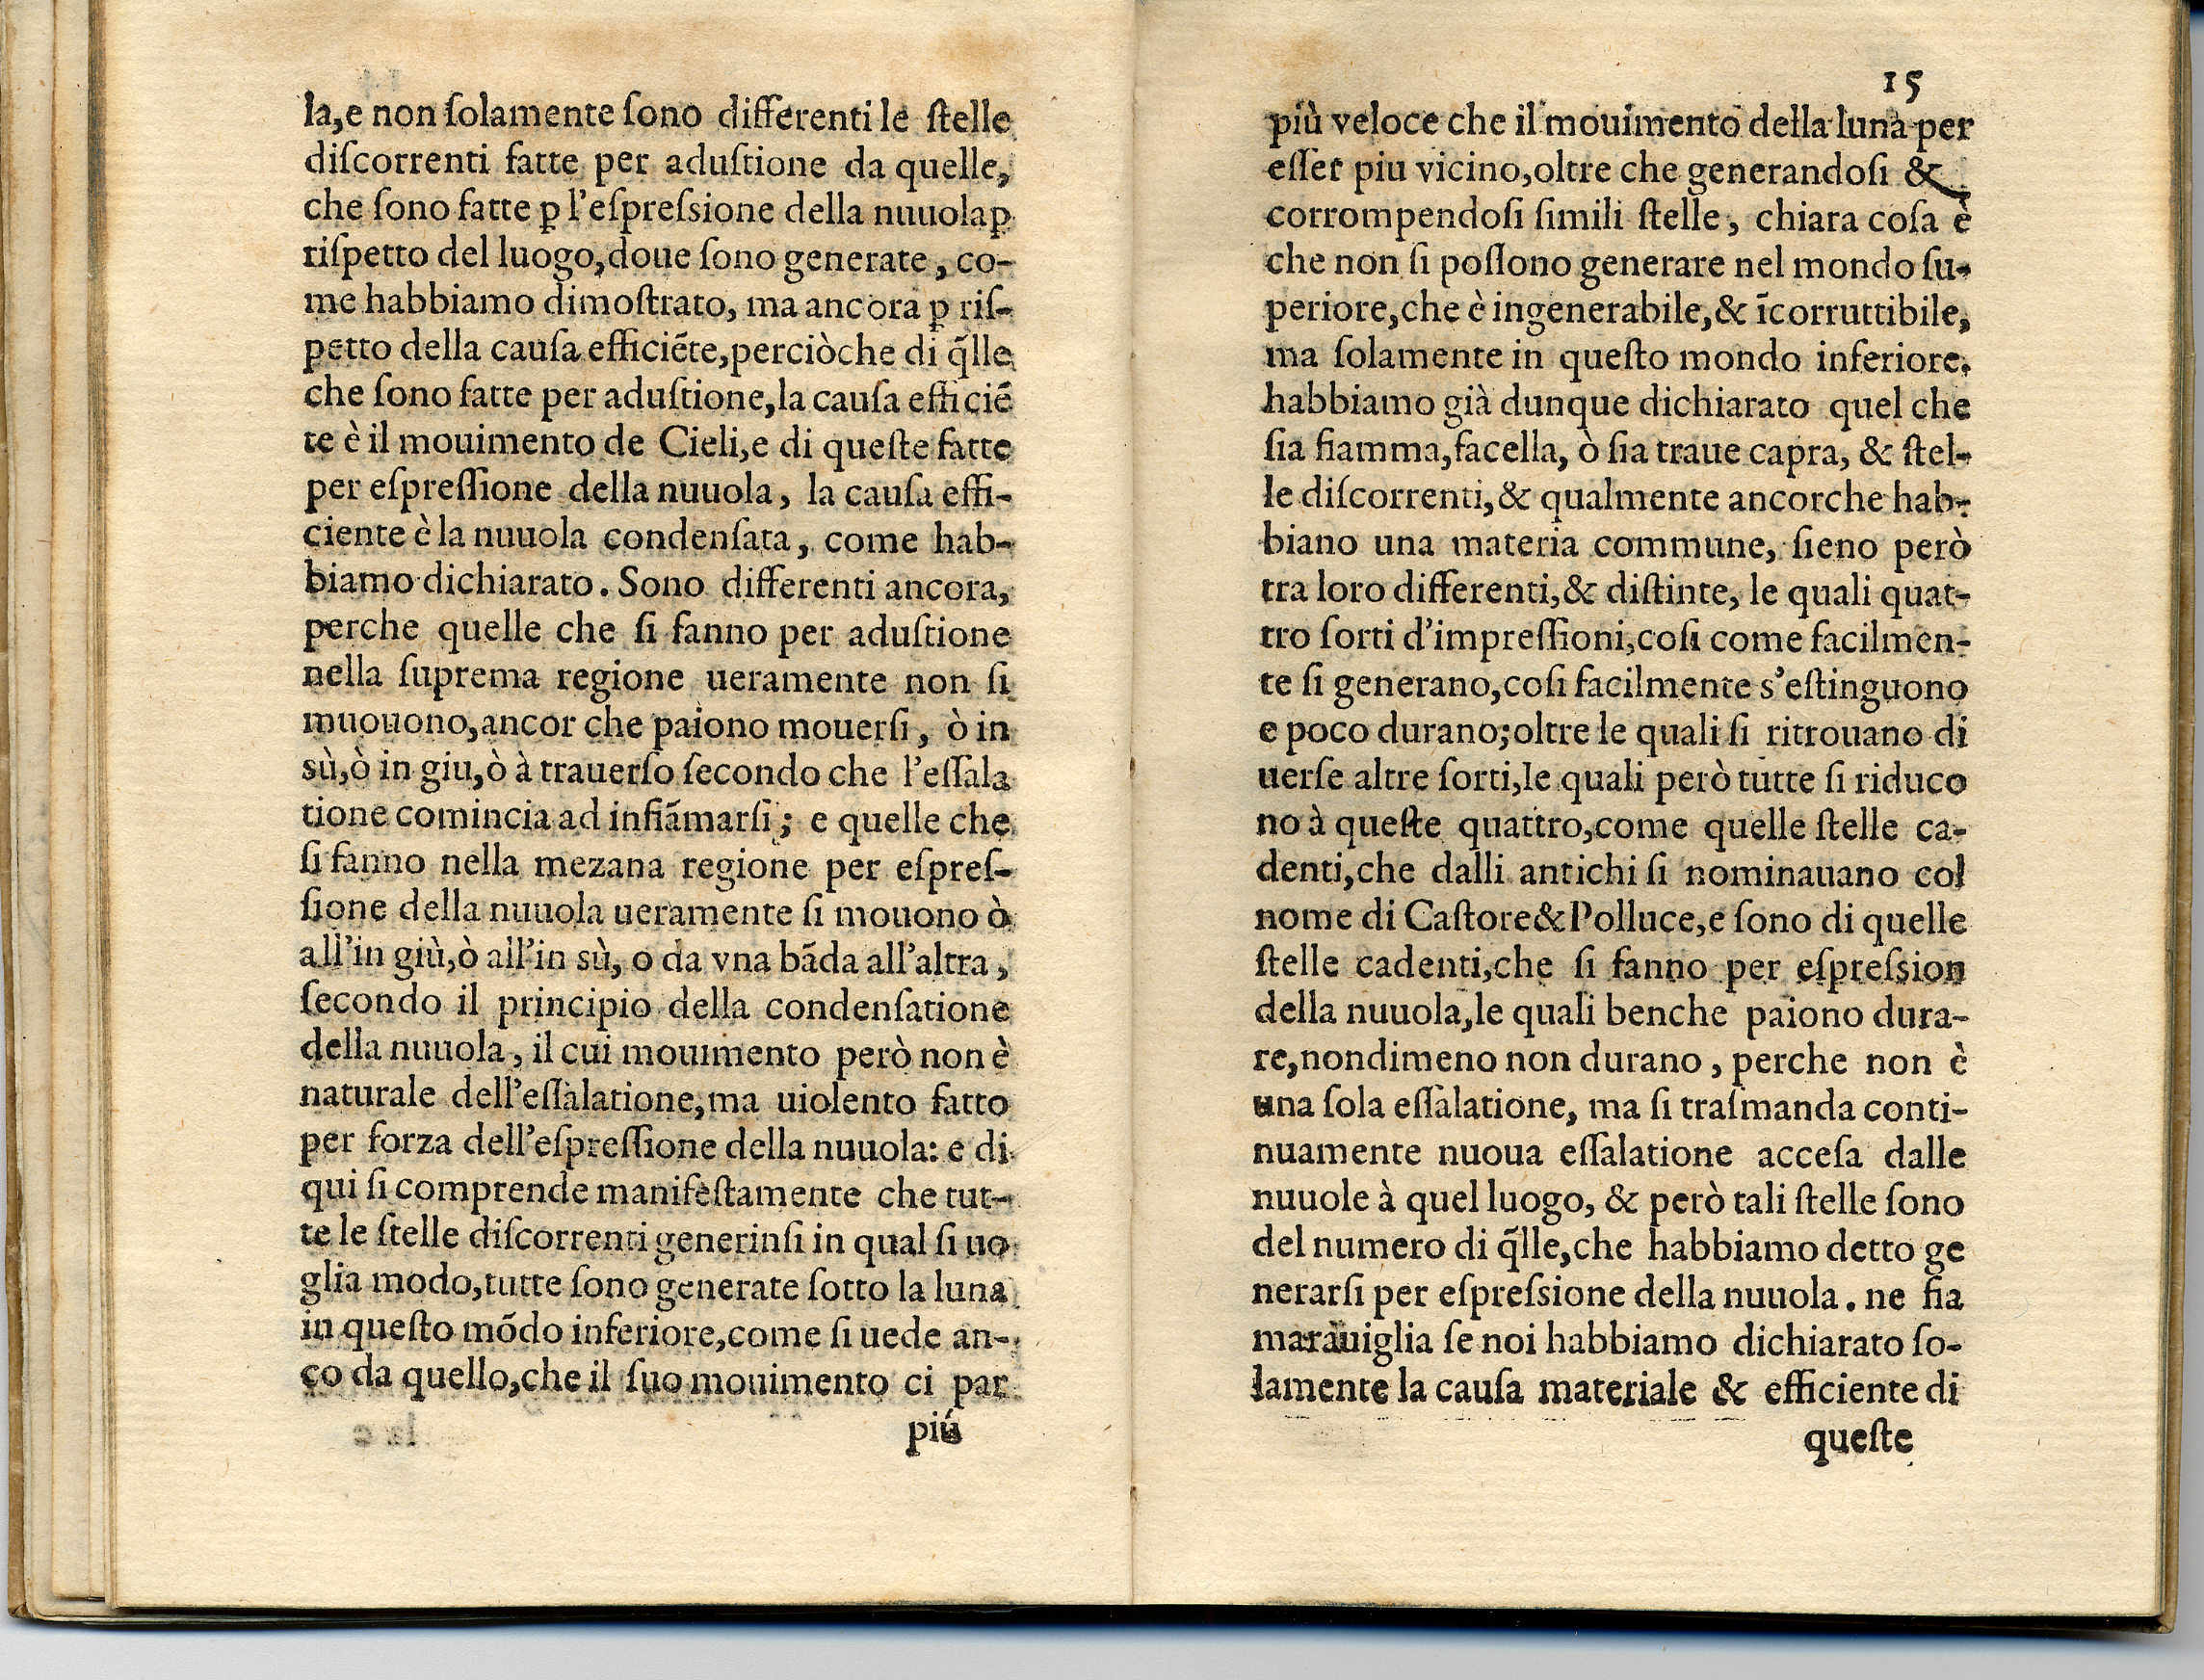 la,e non ſolamente ſono differenti le ſtelle
diſcorrenti fatte per aduſtione da quelle,
che ſono fatte ꝑ l'eſpreſsione della nuuola ꝑ
riſpetto del luogo,doue ſono generate, co-
me habbiamo dimoſtrato, ma ancora ꝑ riſ-
petto della cauſa efficiēte,perciòche di q̃lle
che ſono fatte per aduſtione,la cauſa efficiē
te è il mouimento de Cieli,e di queſte fatte
per eſpreſſione della nuuola, la cauſa effi-
ciente è la nuuola condenſata, come hab-
biamo dichiarato. Sono differenti ancora,
perche quelle che ſi fanno per aduſtione
nella ſuprema regione ueramente non ſi
muouono,ancor che paiono mouerſi, ò in
sù,ò in giu,ò à trauerſo ſecondo che l'eſſala
tione comincia ad infiãmarſi; e quelle che
ſi fanno nella mezana regione per eſpreſ-
ſione della nuuola ueramente ſi mouono ò
all'in giù,ò all'in sù, o da vna bãda all'altra,
ſecondo il principio della condenſatione
della nuuola, il cui mouimento però non è
naturale dell'eſſalatione,ma uiolento fatto
per forza dell'eſpreſſione della nuuola: e di
qui ſi comprende manifeſtamente che tut-
te le ſtelle diſcorrenti generinſi in qual ſi uo
glia modo,tutte ſono generate ſotto la luna
in queſto mõdo inferiore,come ſi uede an-
co da quello,che il ſuo mouimento ci par
piú
15
più veloce che il mouimento della luna per
eſſer piu vicino,oltre che generandoſi &
corrompendoſi ſimili ſtelle, chiara coſa è
che non ſi poſſono generare nel mondo ſu-
periore,che è ingenerabile,& ĩcorruttibile,
ma ſolamente in queſto mondo inferiore.
habbiamo già dunque dichiarato quel che
ſia fiamma,facella, ò ſia traue capra, & ſtel-
le diſcorrenti,& qualmente ancorche hab-
biano una materia commune, ſieno però
tra loro differenti,& diſtinte, le quali quat-
tro ſorti d'impreſſioni,coſi come facilmen-
te ſi generano,coſi facilmente s'eſtinguono
e poco durano;oltre le quali ſi ritrouano di
uerſe altre ſorti,le quali però tutte ſi riduco
no à queſte quattro,come quelle ſtelle ca-
denti,che dalli antichi ſi nominauano col
nome di Caſtore&Polluce,e ſono di quelle
ſtelle cadenti,che ſi fanno per eſpreſsion
della nuuola,le quali benche paiono dura-
re,nondimeno non durano, perche non è
una ſola eſſalatione, ma ſi traſmanda conti-
nuamente nuoua eſſalatione acceſa dalle
nuuole à quel luogo, & però tali ſtelle ſono
del numero di q̃lle,che habbiamo detto ge
nerarſi per eſpreſsione della nuuola. ne fia
marauiglia ſe noi habbiamo dichiarato ſo-
lamente la cauſa materiale & efficiente di
queſte